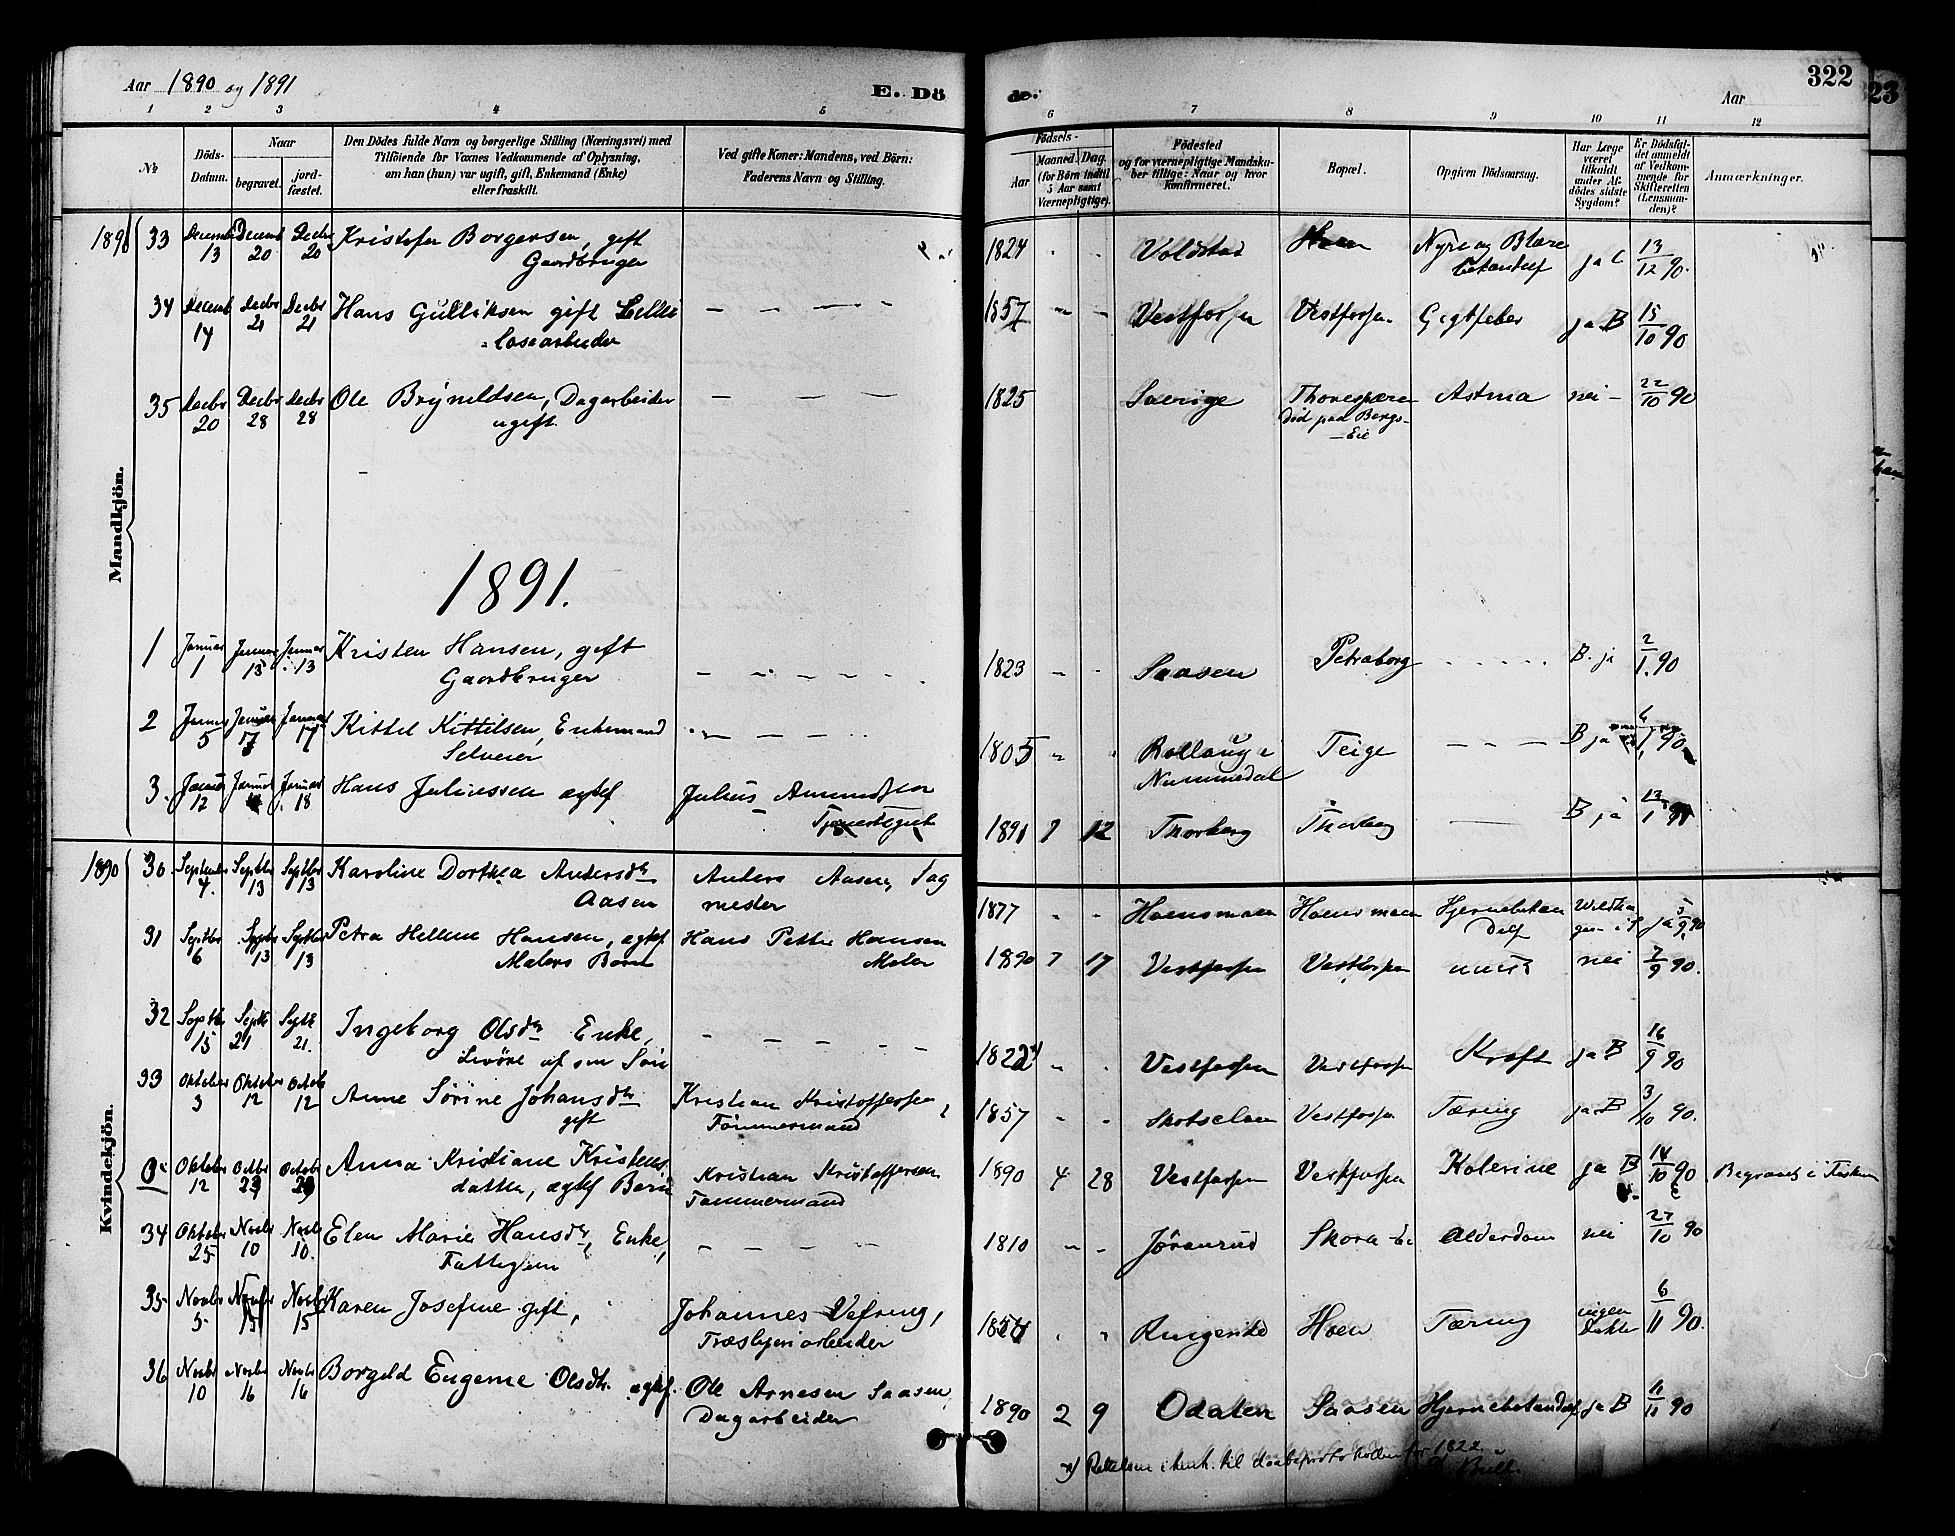 Aar 1890 og 1891
E. Dö
de.
Aar
322
23
1 2 3 4 5 6 7 8 9 10 11 12
№
Döds-Datum.
Naar
begravet.
jord-fæstet.
Den Dödes fulde Navn og borgerlige Stilling (Næringsvei) med
Tilföiende for Voxnes Vedkommende af Oplysning,
om han (hun) var ugift, gift, Enkemand (Enke)
eller fraskilt.
Ved gifte Koner: Mandens, ved Börn:
Faderens Navn og Stilling.
Födsels-
Aar
Maaned. Dag.
(for Börn indtil
5 Aar samt
Værnepligtige).
Födested
og for værnepligtige Mandska-
ber tillige: Naar og hvor
konfirmeret.
Bopæl.
Opgiven Dödsaarsag.
Har Læge
været
tilkaldt
under Af-
dödes sidste
Sygdom?
Er Dödsfal-
det anmeldt
af Vedkom-
mende for
Skifteretten
(Lensman-
den)?
Anmærkninger.
Mandkjön.
1890 33 13 20 20 Kristofer Borgersen, gift 1824 Voldstad Hoen Nyre og Blære ja C 13/12 90.
Gaardbruger
34 Decemb 14 Decbr 21 Decbr 21 Hans Gulliksen gift — — — — 1857 Vestfossen Vestfossen Gigtfeber ja B 15/10 90
35 Decbr 20 Decbr 28 Decbr 28 Ole Bryneldsen, Dagarbeider — — — 1825 Sverige Astma nei — 22/10 90
ugift. død paa Bergs-
Eie
1891.
1 Januar 1 Januar 13 Januar 13 Kristen Hansen, gift 1823 Saasen Petraborg B. ja 2/1 90
Gaardbruger
2 Januar 5 Januar 17 Januar 17 Kittel Kittilsen, Enkemand 1805 Rollaug i Teige — — — B ja 6/1 90
Selveier Nummedal
3. Januar 12 Januar Januar 18 Hans Juliussen ægtef Julius Amundsen 1891 1 12 Thorberg Thorberg — B ja 13/1
Kvindekjön.
1890 30 September 4. Septbr 13 Septbr 13 Karoline Dorthea Andersdtr Anders Aasen, Tag 1877 Hoensmoen Hoensmoen Hjernebetæn ja 5/9 90
Aasen mester
31 Septbr 6 Septbr 13 Septbr 13 Petra Hellene Hansen, ægtef Hans Petter Hansen 1890 7 17 Vestfossen Vestfossen nei 7/9 90.
Malers Barn Maler
32 Septbr 15 Septb 21 Septb 21. Ingeborg Olsdtr Enke, — — — — 1822 Vestfossen Vestfossen Kræft ja B 16/9 90
Livøre af sin Søn
33 Oktober 3 Oktober 12 Octob 12 Anne Sörine Johansdtr Kristian Kristoffersen, 1857 Skotselven Vestfossen Tæring ja B 3/10 90.
gift Tömmermand
Oktober 12 Octbr October Anna Kristiane Kristens Kristian Kristoffersen 1890 4 28 Vestfossen Vestfossen Kolerine ja B 14/10 90 Begravet i Fiskum
datter, ægtef Barn Tømmermand
34 Oktober 25 Novbr 10 Novbr 10. Elen Marie Hansdtr, Enke, — — — — 1810 Jøranrud Skara-Eie Alderdom nei 27/10 90
Fattiglem
35 Novbr 5 Novbr 15 Novbr 15 Karen Josefine gift, Johannes Vefring, Ringerike Hoen Tæring ingen 6/11 90.
Træsliperiarbeider
36 Novbr 10 Novbr 16 Novbr 16 Borgild Eugenie Olsdtr. ægtef. Ole Arnesen Saasen 1890 2 9 Odalen Saasen Hjernebetændelse ja B 11/11 90
Dagarbeider
x) til daabsprotokollen for 1822.